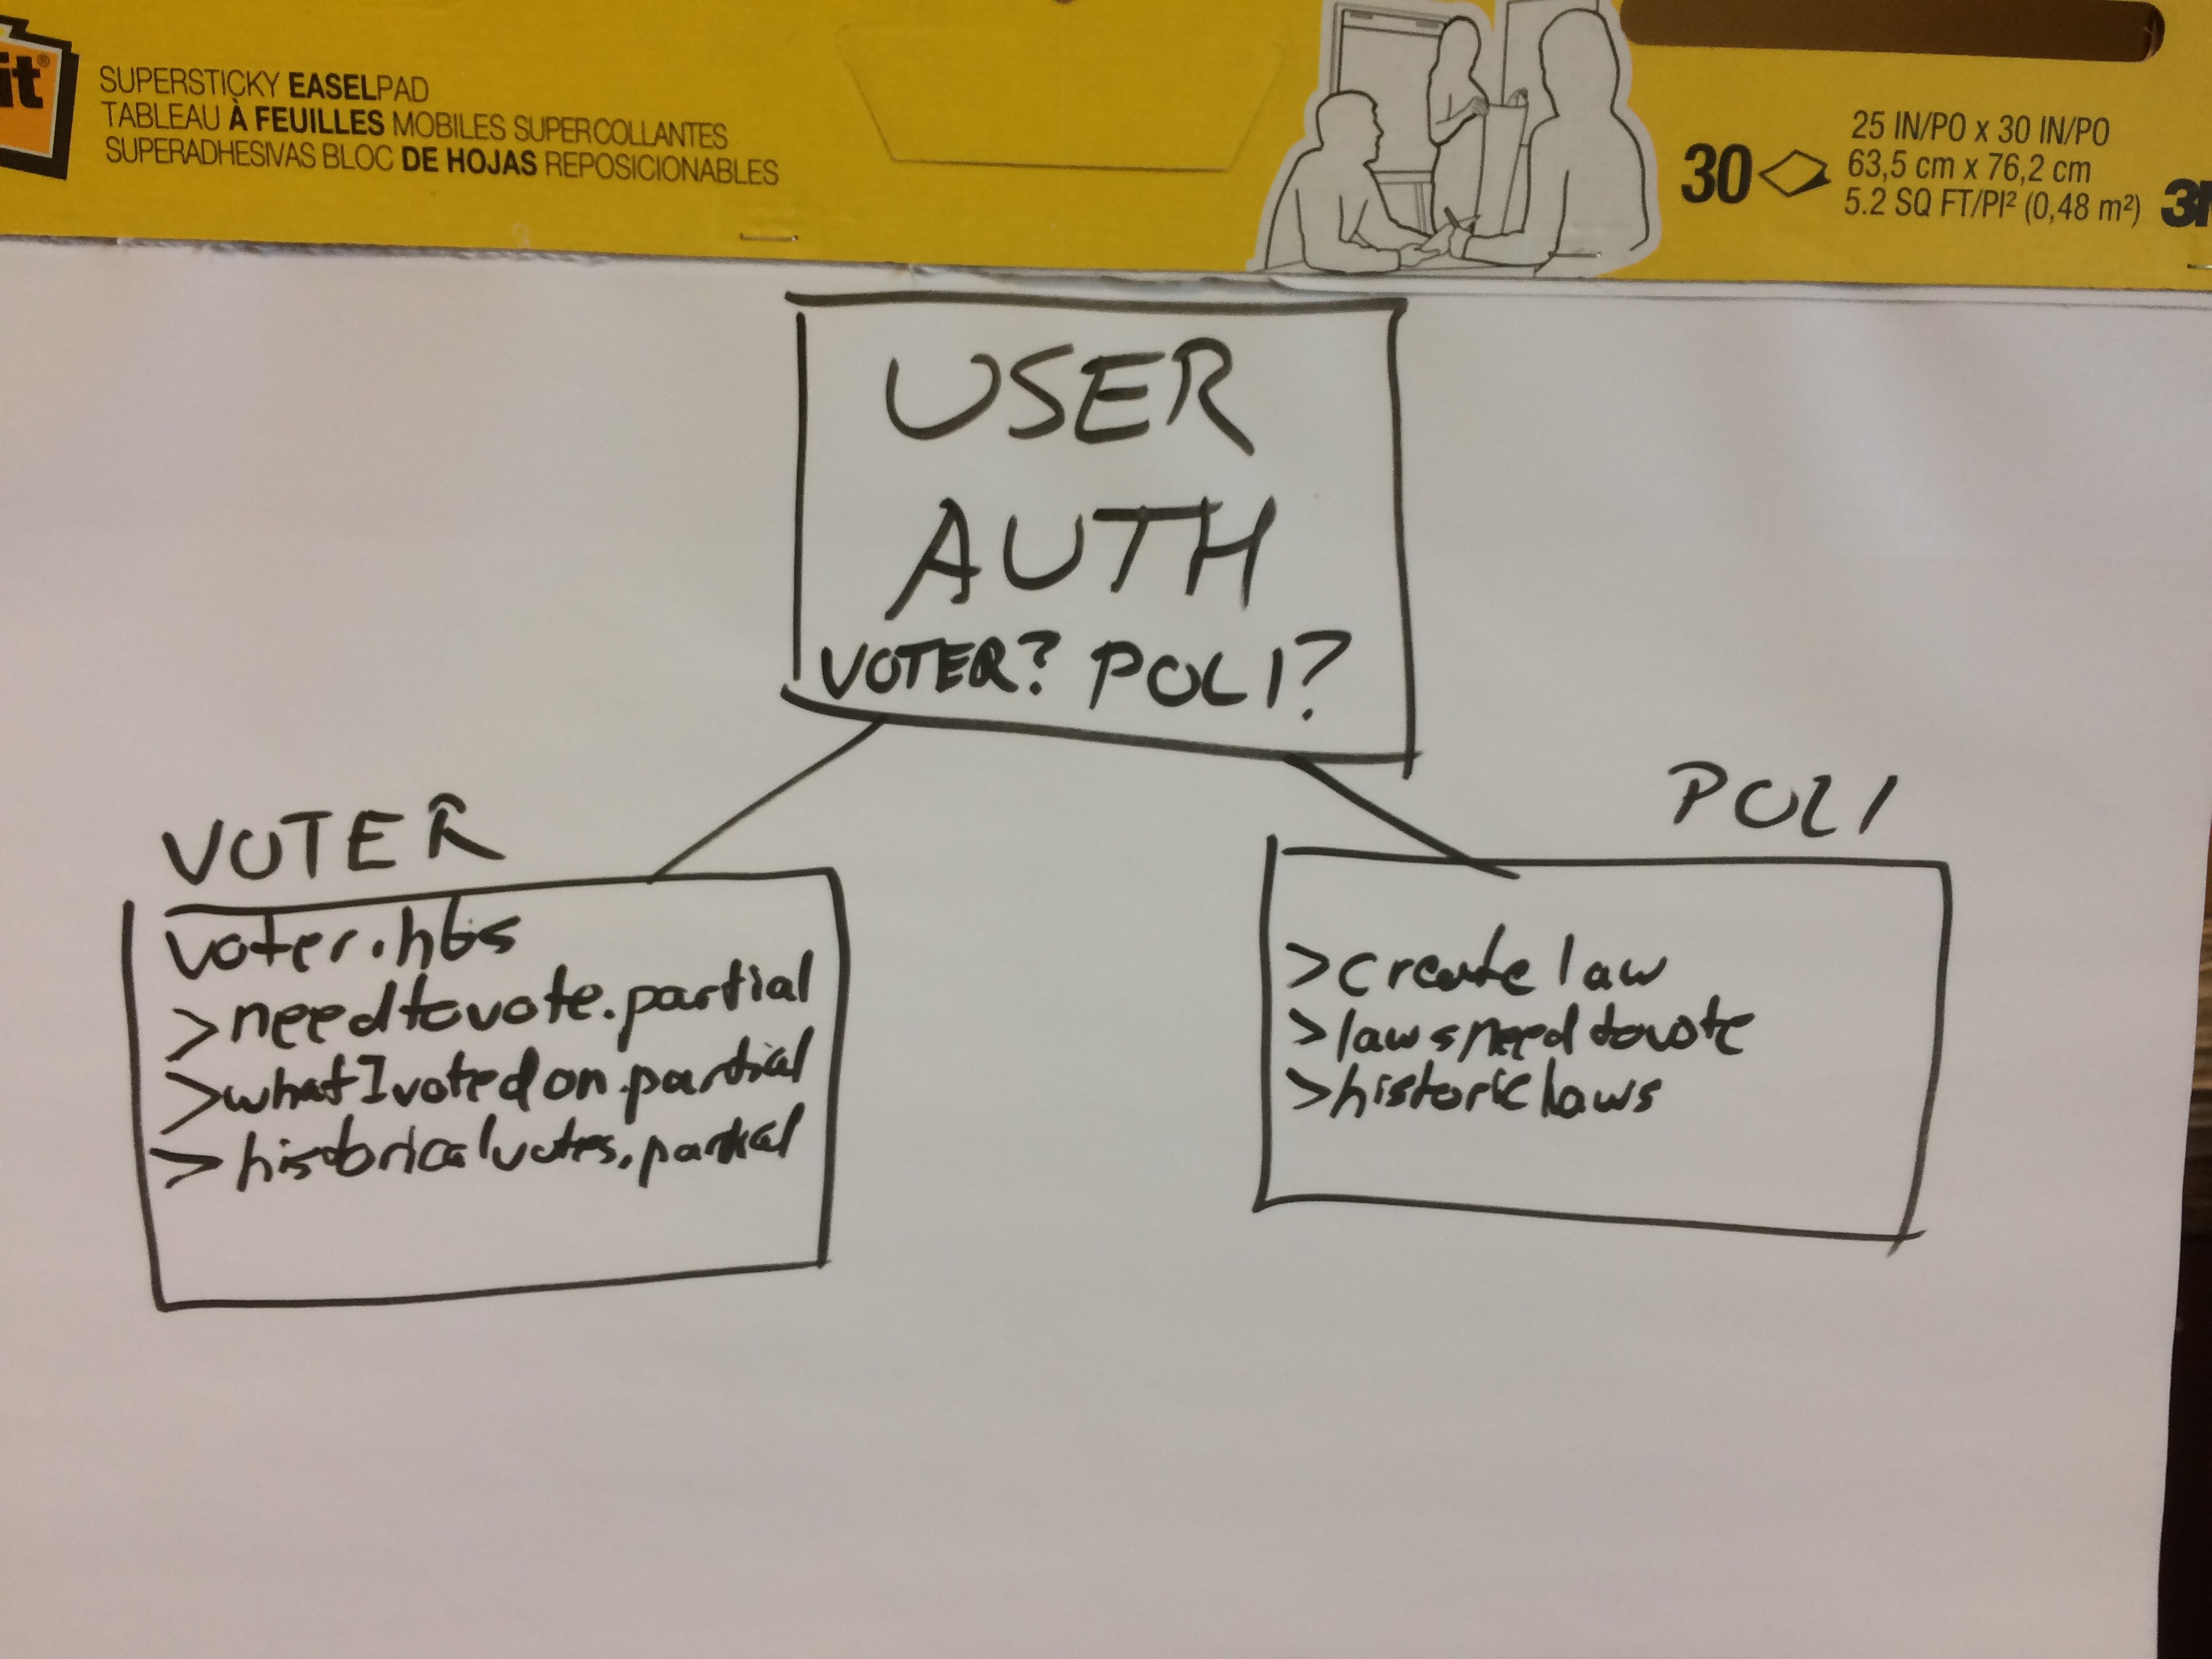 it®
SUPERSTICKY EASELPAD
TABLEAU À FEUILLES MOBILES SUPERCOLLANTES
SUPERADHESIVAS BLOC DE HOJAS REPOSICIONABLES
30
25 IN/PO x 30 IN/PO
63,5 cm x 76,2 cm
5.2 SQ FT/PI² (0,48 m²)
USER
AUTH
VOTER? POLI?
VOTER
voter.hbs
>needtovote.partial
>whatIvotedon.partial
>historicalvotes.partial
POLI
>create law
>lawsneedtovote
>historiclaws